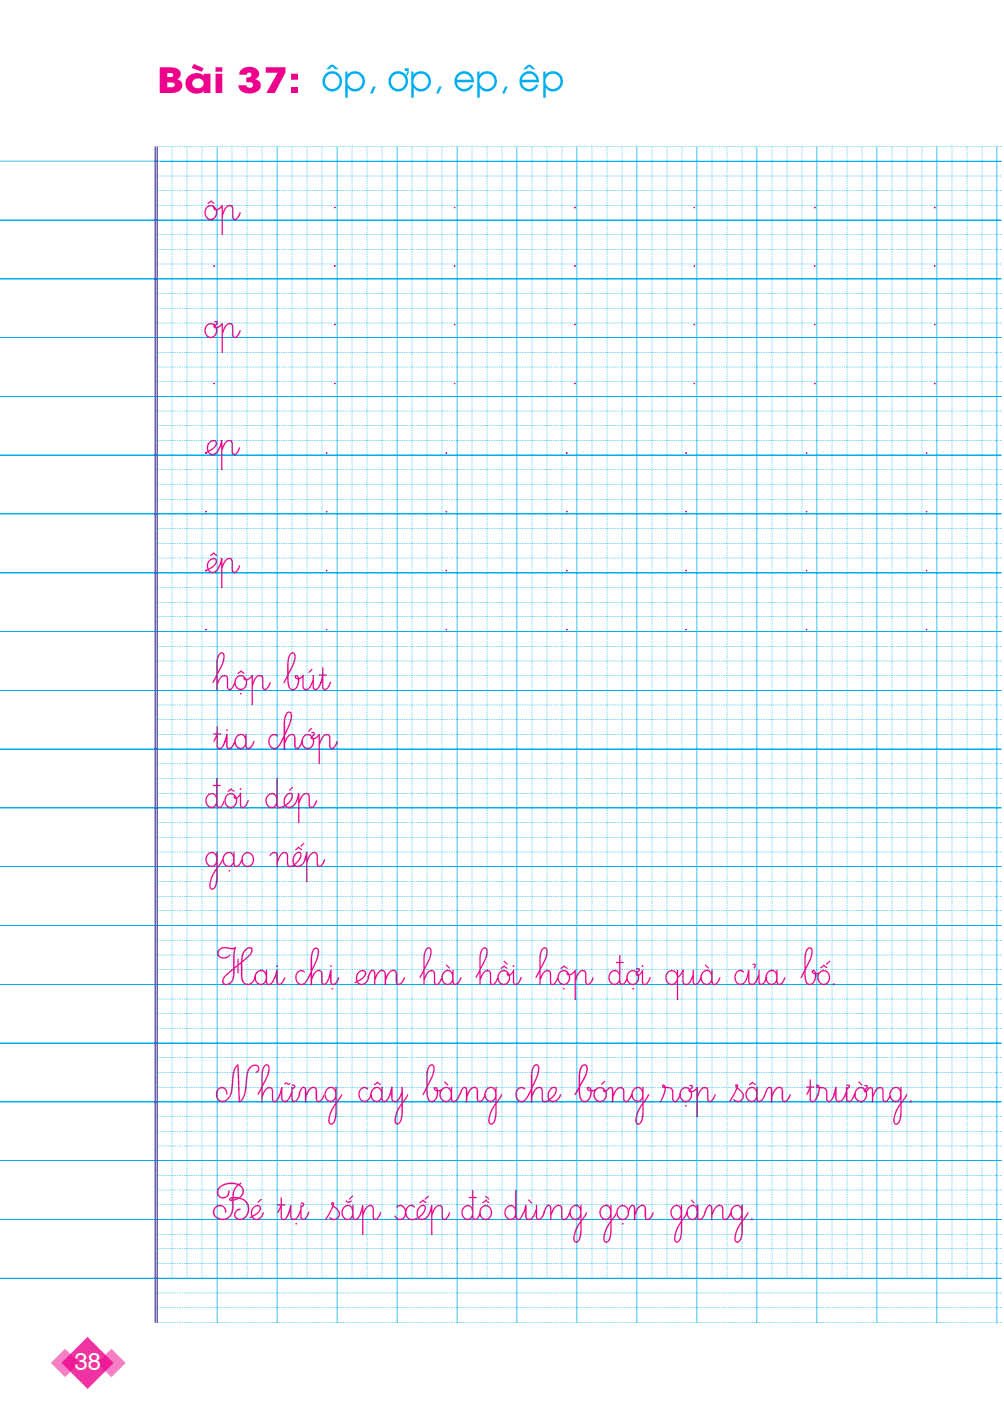 Bài 37: ôp, ơp, ep, êp
ôp
ơp
ep
êp
hộp bút
tia chớp
đôi dép
gạo nếp
Hai chị em hà hồi hộp đợi quà của bố.
Những cây bàng che bóng rợp sân trường.
Bé tự sắp xếp đồ dùng gọn gàng.
38